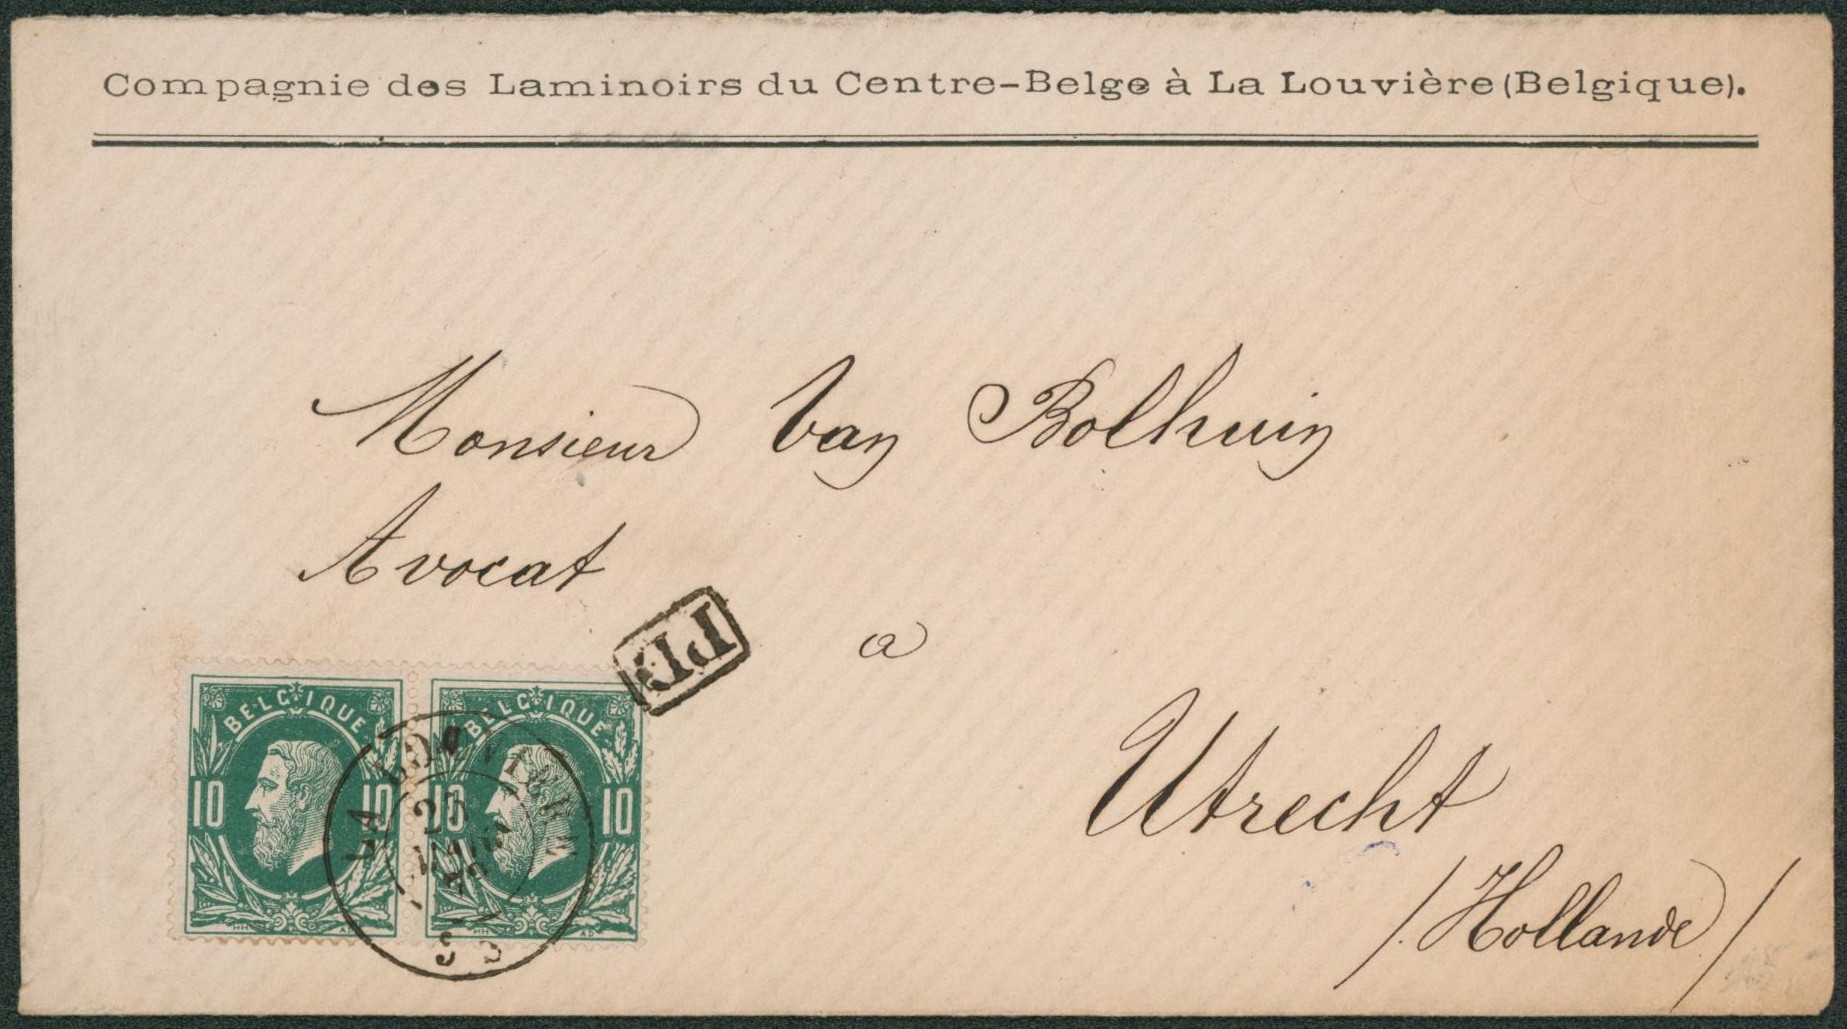 Compagnie des Laminoirs du Centre-Belge à La Louvière (Belgique).
Monsieur Van Bolhuin
Avocat
PD
a
Utrecht
/Hollande/
BELGIQUE
10 10
BELGIQUE
10 10
LA LOUVIERE
23